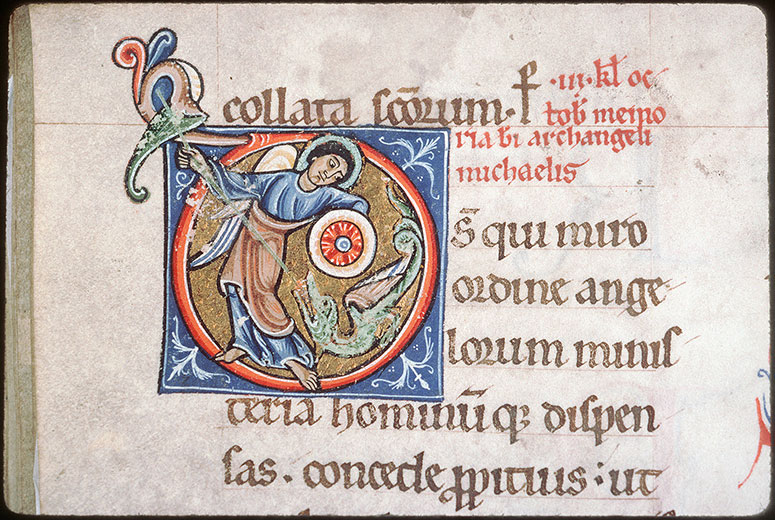 collata sc̄orum. ꝑ ·iii· kl̄ oc
tob̄ memo
ria bi archangeli
michaelis
DS̄ qui miro
ordine ange
lorum minis
teria hominūq; dispen
sas. concede ꝓpitius: ut